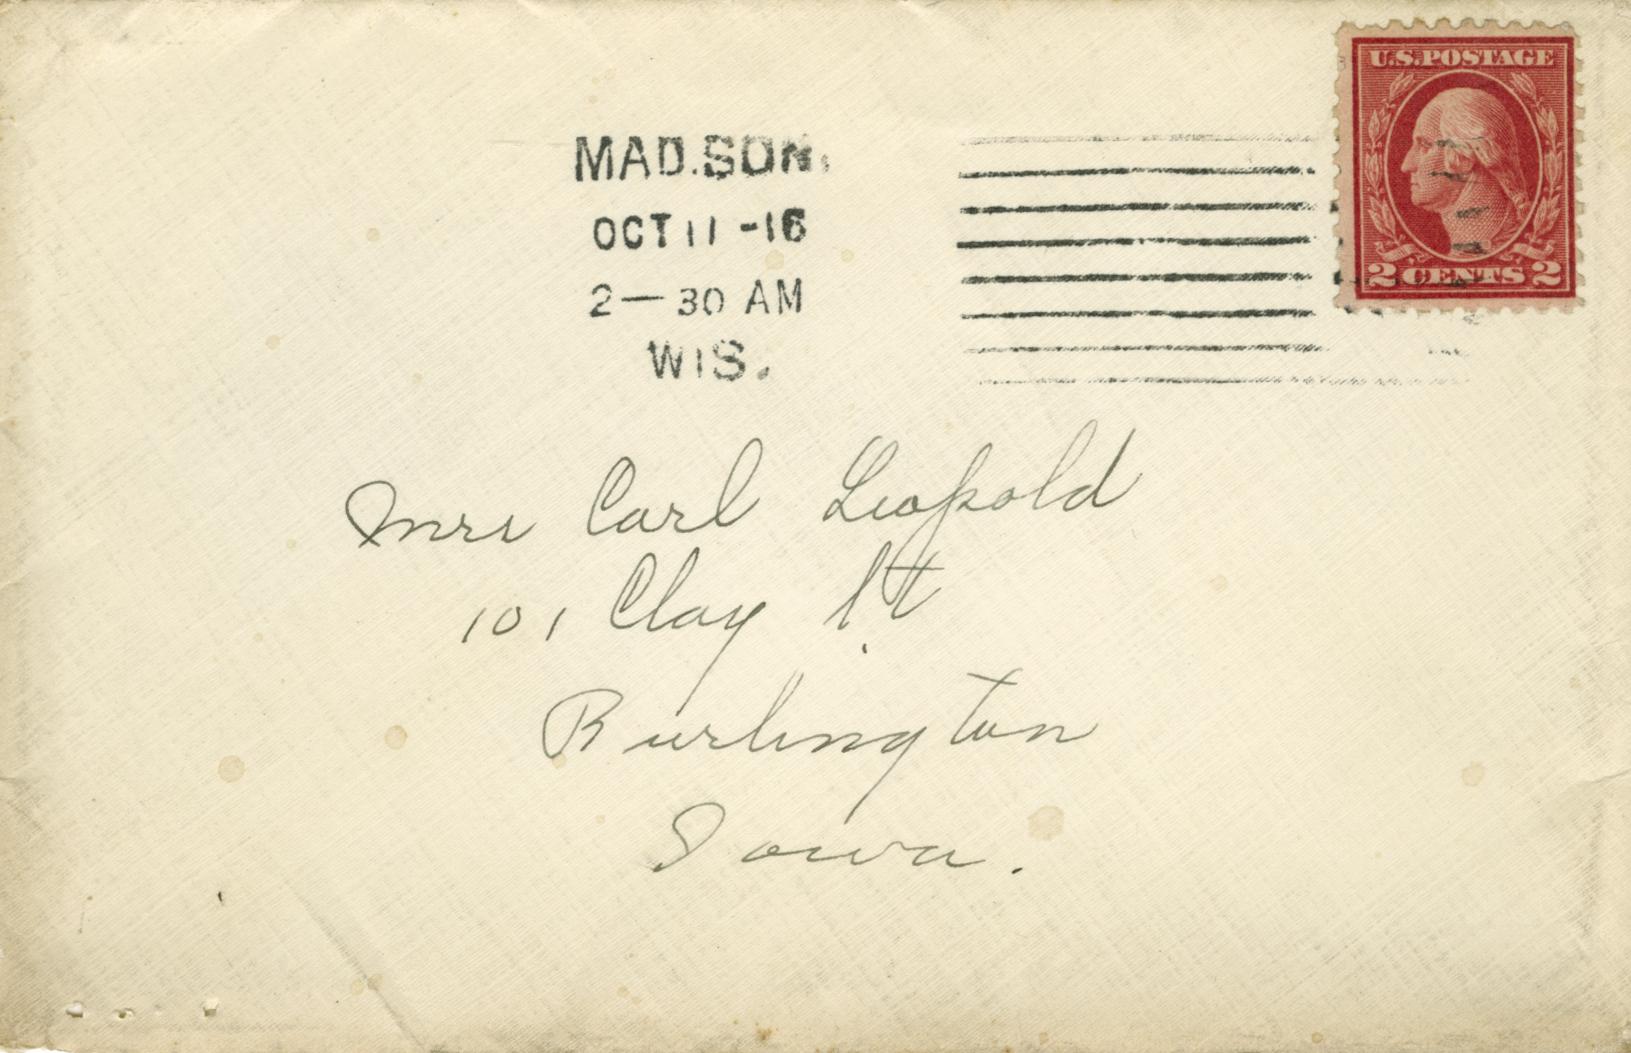 U.S. POSTAGE
2 CENTS 2
MADISON,
OCT 11 -16
2—30 AM
WIS.
Mrs Carl Leopold
101 Clay St.
Burlington
Iowa.